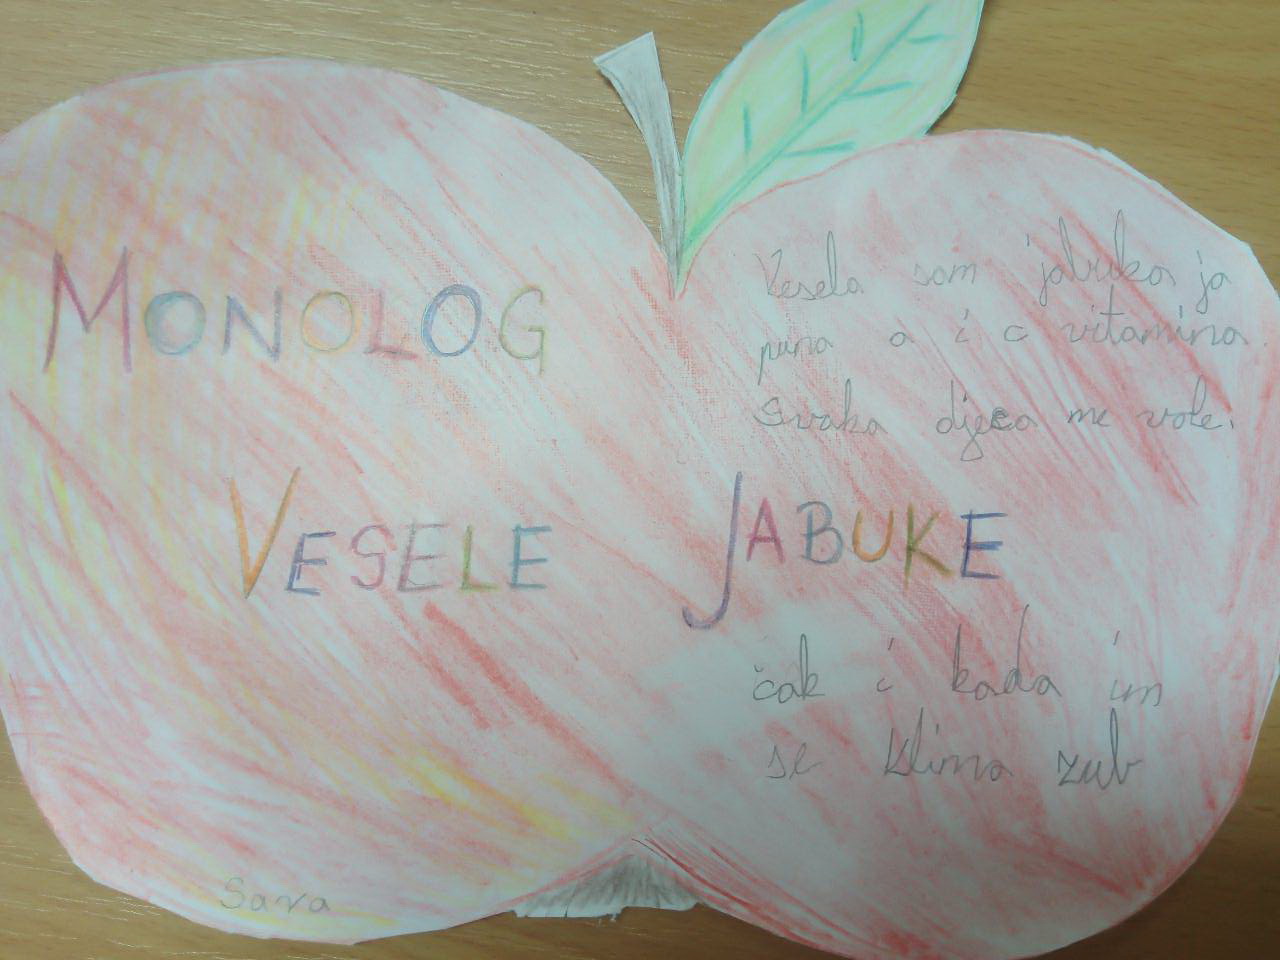 MONOLOG
VESELE JABUKE
Vesela sam jabuka ja
puna a i c vitamina.
Svaka djeca me vole.
čak i kada im
se klima zub
Sara